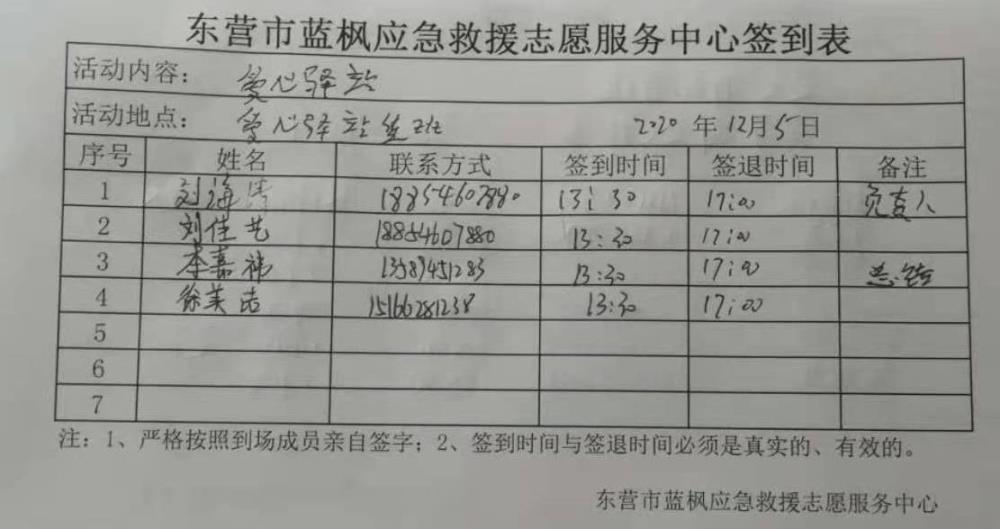 东营市蓝枫应急救援志愿服务中心签到表
活动内容： 爱心驿站
活动地点： 爱心驿站 2020 年 12月 5日
序号 姓名 联系方式 签到时间 签退时间 备注
1 刘海涛 18854607880 13:30 17:00 负责人
2 刘佳艺 18854607880 13:30 17:00
3 李嘉祎 13589451283 13:30 17:00
4 徐美洁 15166281238 13:30 17:00
5
6
7
注：1、严格按照到场成员亲自签字；2、签到时间与签退时间必须是真实的、有效的。
东营市蓝枫应急救援志愿服务中心